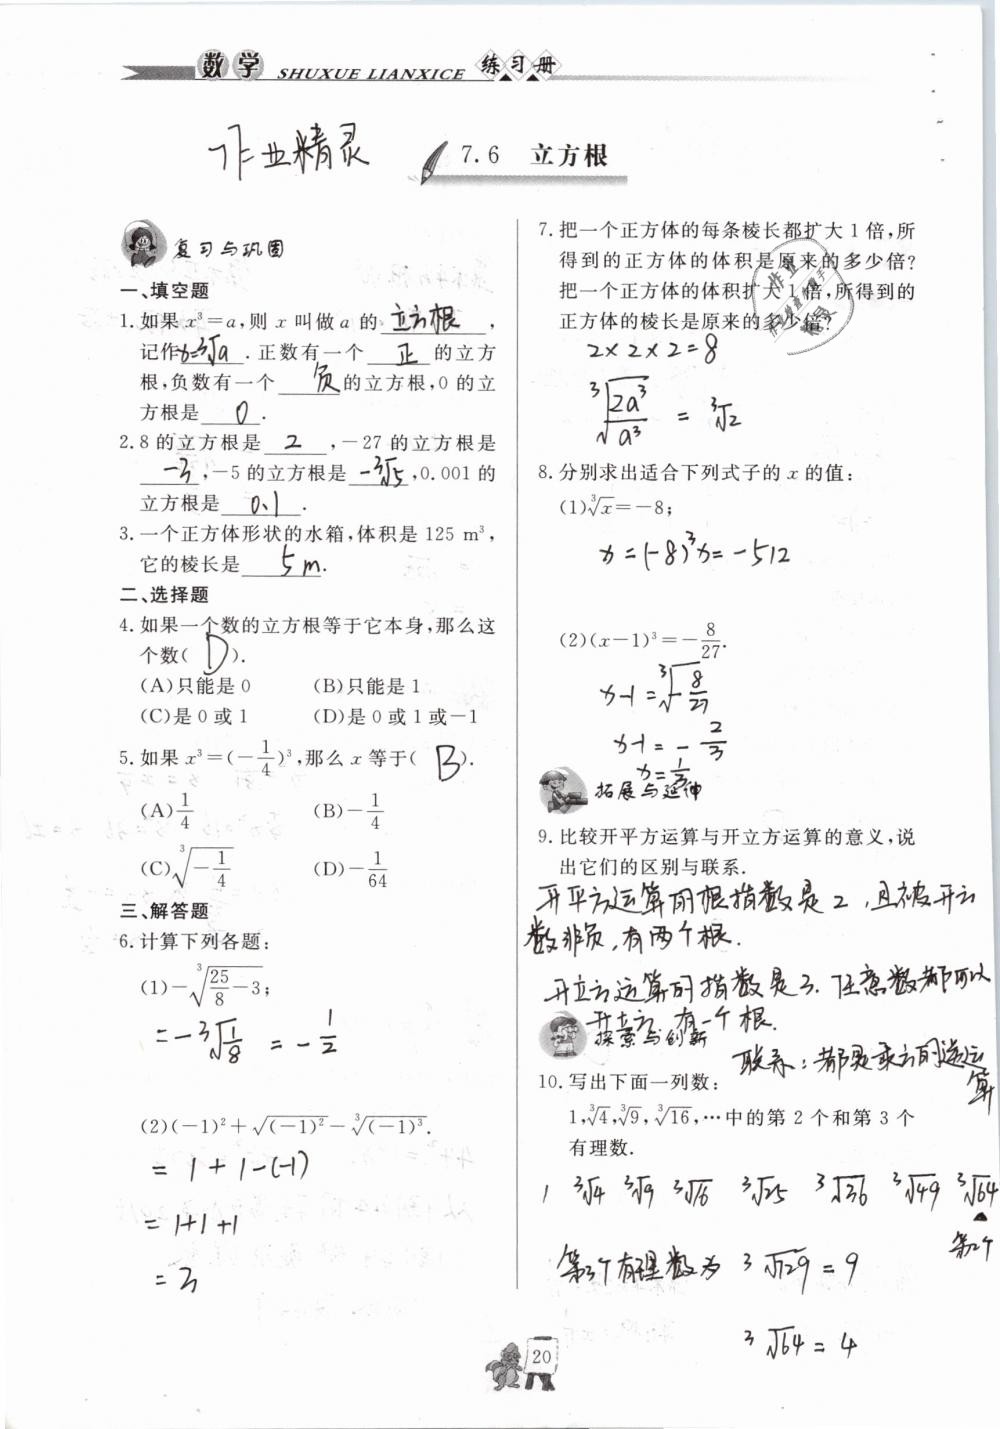 数学 SHUXUE LIANXICE 练习册
作业精灵
7.6 立方根
复习与巩固
一、填空题
1.如果 x³=a,则 x 叫做 a 的 立方根 ,
记作 x=³√a .正数有一个 正 的立方
根,负数有一个 负 的立方根,0 的立
方根是 0 .
2.8 的立方根是 2 ,-27 的立方根是
-3 ,-5 的立方根是 -³√5 ,0.001 的
立方根是 0.1 .
3.一个正方体形状的水箱,体积是 125 m³,
它的棱长是 5m.
二、选择题
4.如果一个数的立方根等于它本身,那么这
个数( D ).
(A)只能是 0 (B)只能是 1
(C)是 0 或 1 (D)是 0 或 1 或-1
5.如果 x³=(-1/4)³,那么 x 等于( B ).
(A)1/4 (B)-1/4
(C)³√(-1/4) (D)-1/64
三、解答题
6.计算下列各题:
(1)-³√(25/8-3);
=-³√(1/8) =-1/2
(2)(-1)²+√((-1)²)-³√((-1)³).
= 1+1-(-1)
=1+1+1
=3
7.把一个正方体的每条棱长都扩大 1 倍,所
得到的正方体的体积是原来的多少倍?
把一个正方体的体积扩大 1 倍,所得到的
正方体的棱长是原来的多少倍?
2×2×2=8
³√(2a³/a³) = ³√2
8.分别求出适合下列式子的 x 的值:
(1)³√x=-8;
x=(-8)³ x=-512
(2)(x-1)³=-8/27.
x-1=³√(-8/27)
x-1=-2/3
x=1/3
拓展与延伸
9.比较开平方运算与开立方运算的意义,说
出它们的区别与联系.
开平方运算的根指数是2,且被开方
数非负,有两个根.
开立方运算的指数是3.任意数都可以
开立方,有一个根.
探索与创新
联系:都是乘方的逆运
算
10.写出下面一列数:
1,³√4,³√9,³√16,…中的第 2 个和第 3 个
有理数.
1 ³√4 ³√9 ³√16 ³√25 ³√36 ³√49 ³√64
第2个
第3个有理数为 ³√729=9
³√64=4
20